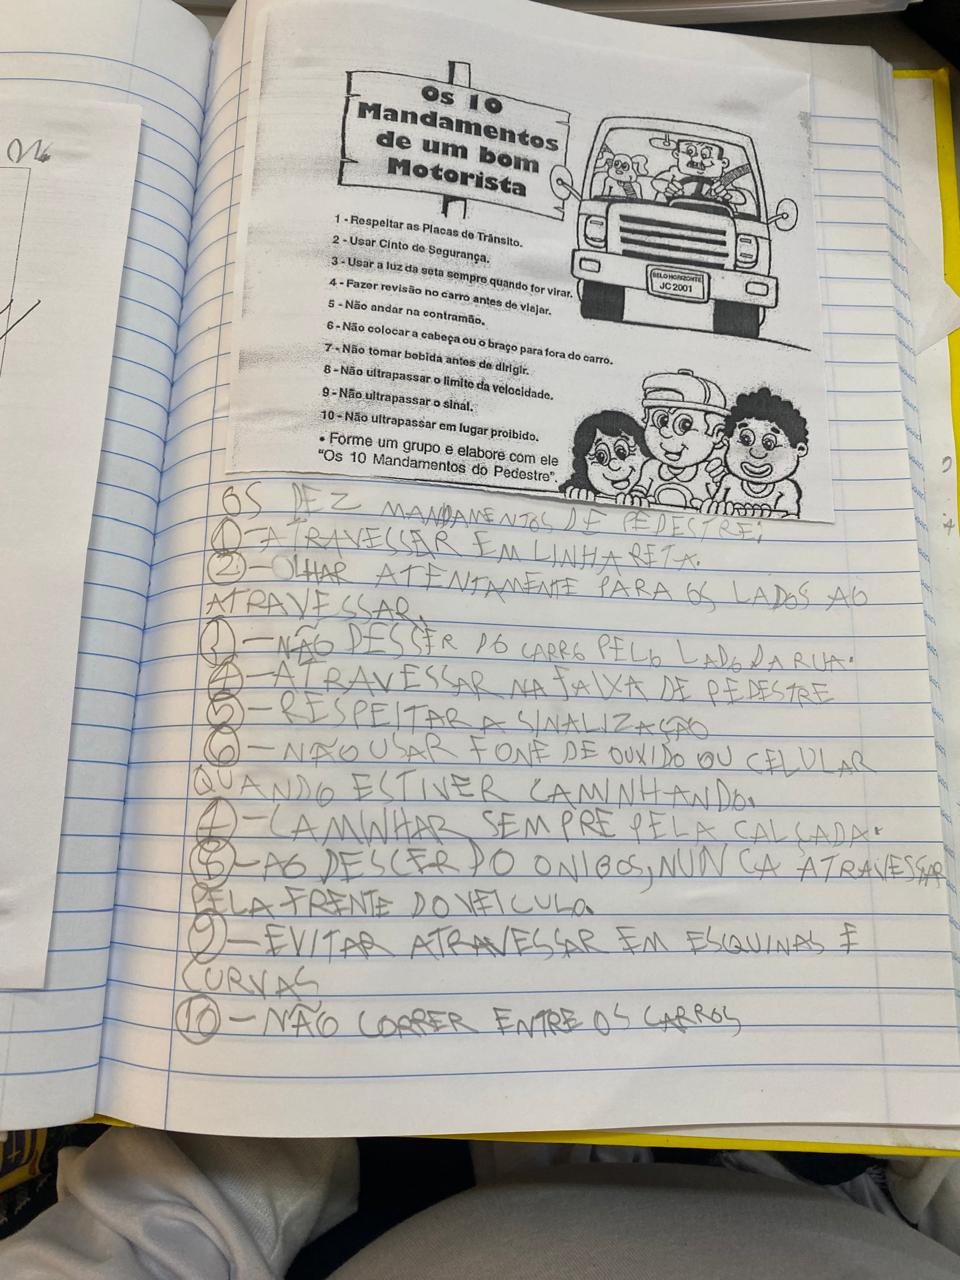 Os 10
Mandamentos
de um bom
Motorista
1 - Respeitar as Placas de Trânsito.
2 - Usar Cinto de Segurança.
3 - Usar a luz da seta sempre quando for virar.
4 - Fazer revisão no carro antes de viajar.
5 - Não andar na contramão.
6 - Não colocar a cabeça ou o braço para fora do carro.
7 - Não tomar bebida antes de dirigir.
8 - Não ultrapassar o limite da velocidade.
9 - Não ultrapassar o sinal.
10 - Não ultrapassar em lugar proibido.
• Forme um grupo e elabore com ele
"Os 10 Mandamentos do Pedestre".
BELO HORIZONTE
JC 2001
OS DEZ MANDAMENTOS DE PEDESTRE:
1-ATRAVESSER EM LINHA RETA.
2-OLHAR ATENTAMENTE PARA OS LADOS AO
ATRAVESSAR.
3-NÃO DESSER DO CARRO PELO LADO DA RUA.
4-ATRAVESSAR NA FAIXA DE PEDESTRE
5-RESPEITAR A SINALIZAÇÃO
6-NÃO USAR FONE DE OUXIDO OU CELULAR
QUANDO ESTIVER CAMINHANDO.
7-CAMINHAR SEMPRE PELA CALÇADA.
8-AO DESCER DO ONIBOS, NUNCA ATRAVESSAR
PELA FRENTE DO VEICULO.
9-EVITAR ATRAVESSAR EM ESQUINAS E
CURVAS
10-NÃO CORRER ENTRE OS CARROS